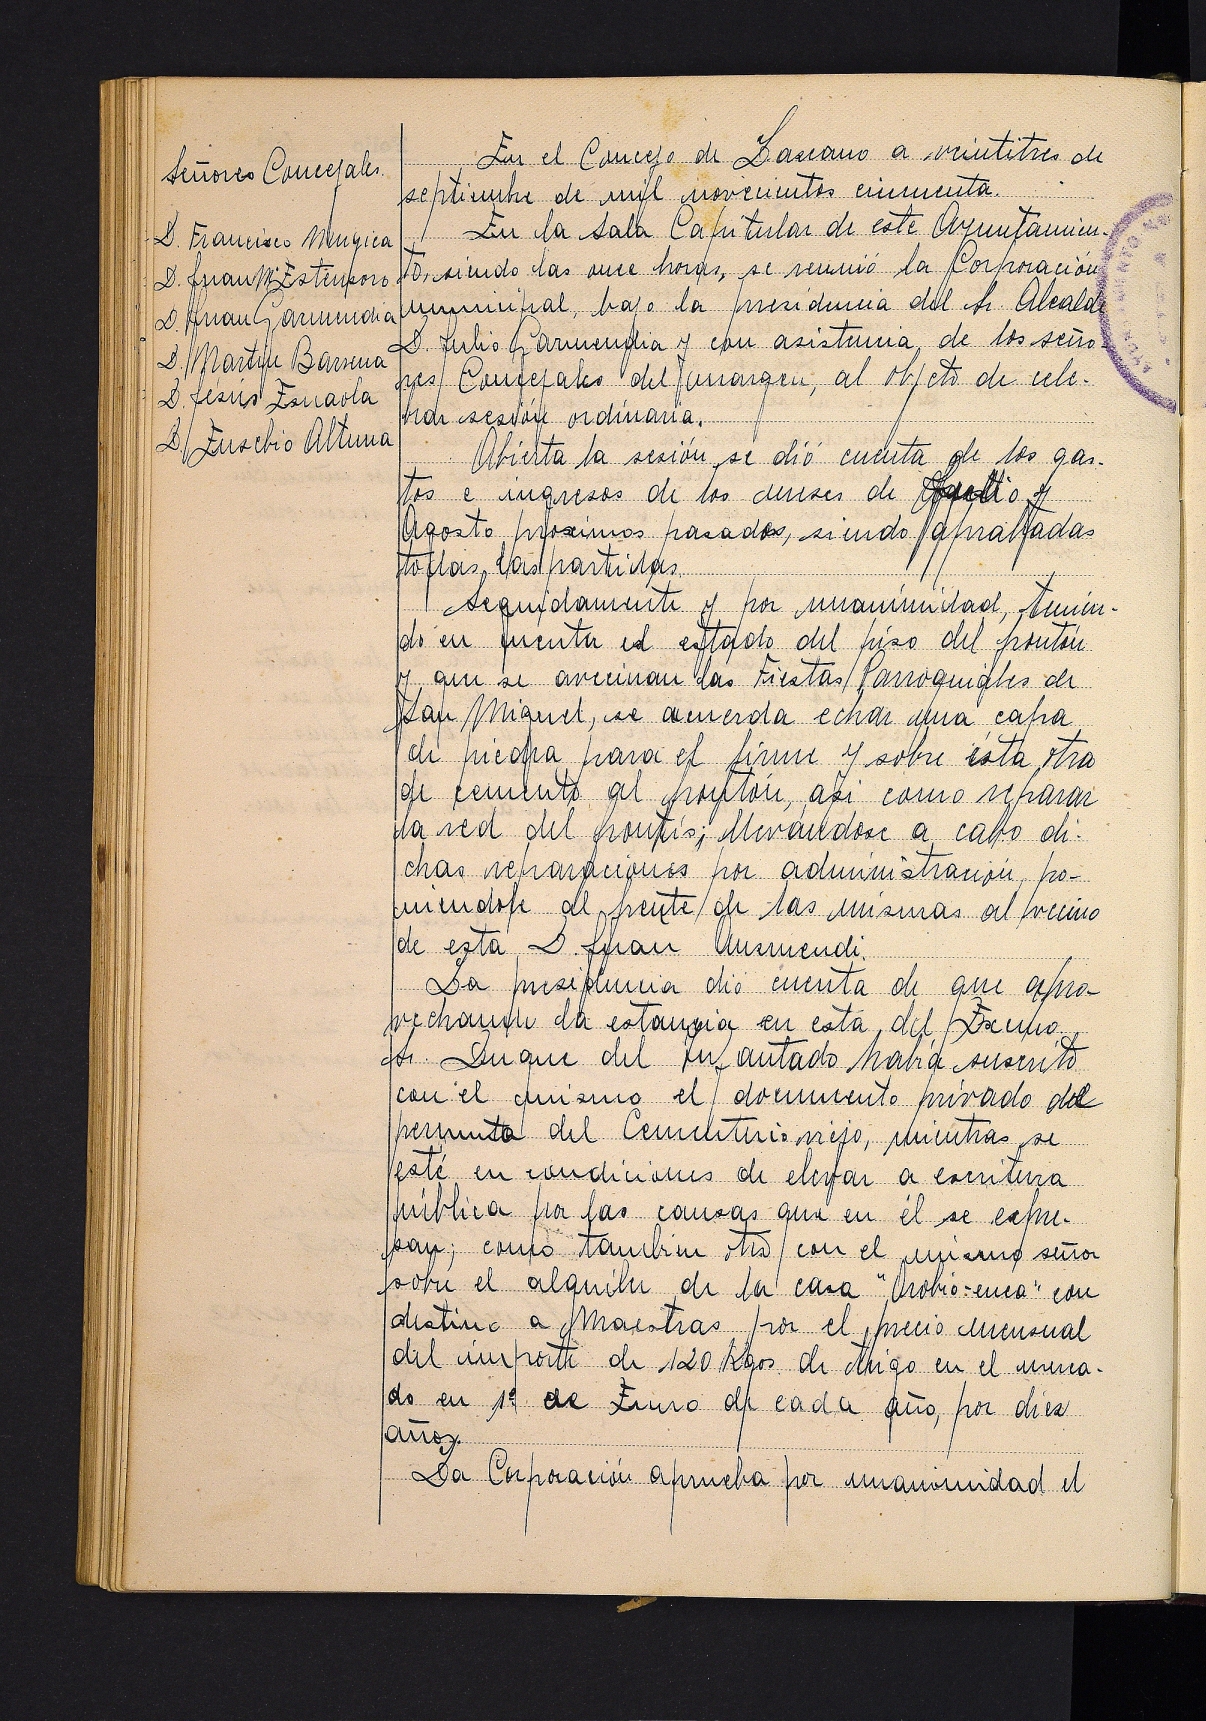 Señores Concejales.
D. Francisco Mugica
D. Juan Mª Estensoro
D. Juan Garmendia
D. Martin Barrena
D. Jesús Esnaola
D. Eusebio Altuna
En el Concejo de Lazcano a veintitres de
septiembre de mil novecientos cincuenta.
En la Sala Capitular de este Ayuntamien-
to, siendo las once horas, se reunió la Corporación
municipal, bajo la presidencia del Sr. Alcalde
D. Julio Garmendia y con asistencia de los seño-
res Concejales del margen, al objeto de cele-
brar sesión ordinaria.
Abierta la sesión se dió cuenta de los gas-
tos e ingresos de los meses de Julio y
Agosto proximos pasados, siendo aprobadas
todas las partidas.
Seguidamente y por unanimidad, tenien-
do en cuenta el estado del piso del pontón
y que se avecinan las Fiestas Parroquiales de
San Miguel, se acuerda echar una capa
de piedra para el firme y sobre ésta otra
de cemento al pontón, asi como reparar
la red del frontis; llevándose a cabo di-
chas reparaciones por administración, po-
niendose al frente de las mismas al vecino
de esta D. Juan Ausmendi.
La presidencia dió cuenta de que apro-
vechando la estancia en esta del Excmo.
Sr. Duque del Infantado habia suscrito
con el mismo el documento privado de
permuta del Cementerio viejo, mientras se
esté en condiciones de elevar a escritura
pública por las causas que en él se expre-
san; como tambien otro con el mismo señor
sobre el alquiler de la casa
con
destino a Maestras por el precio mensual
del importe de 120 Kgos de trigo en el merca-
do en 1º de Enero de cada año, por diez
años.
La Corporación aprueba por unanimidad el